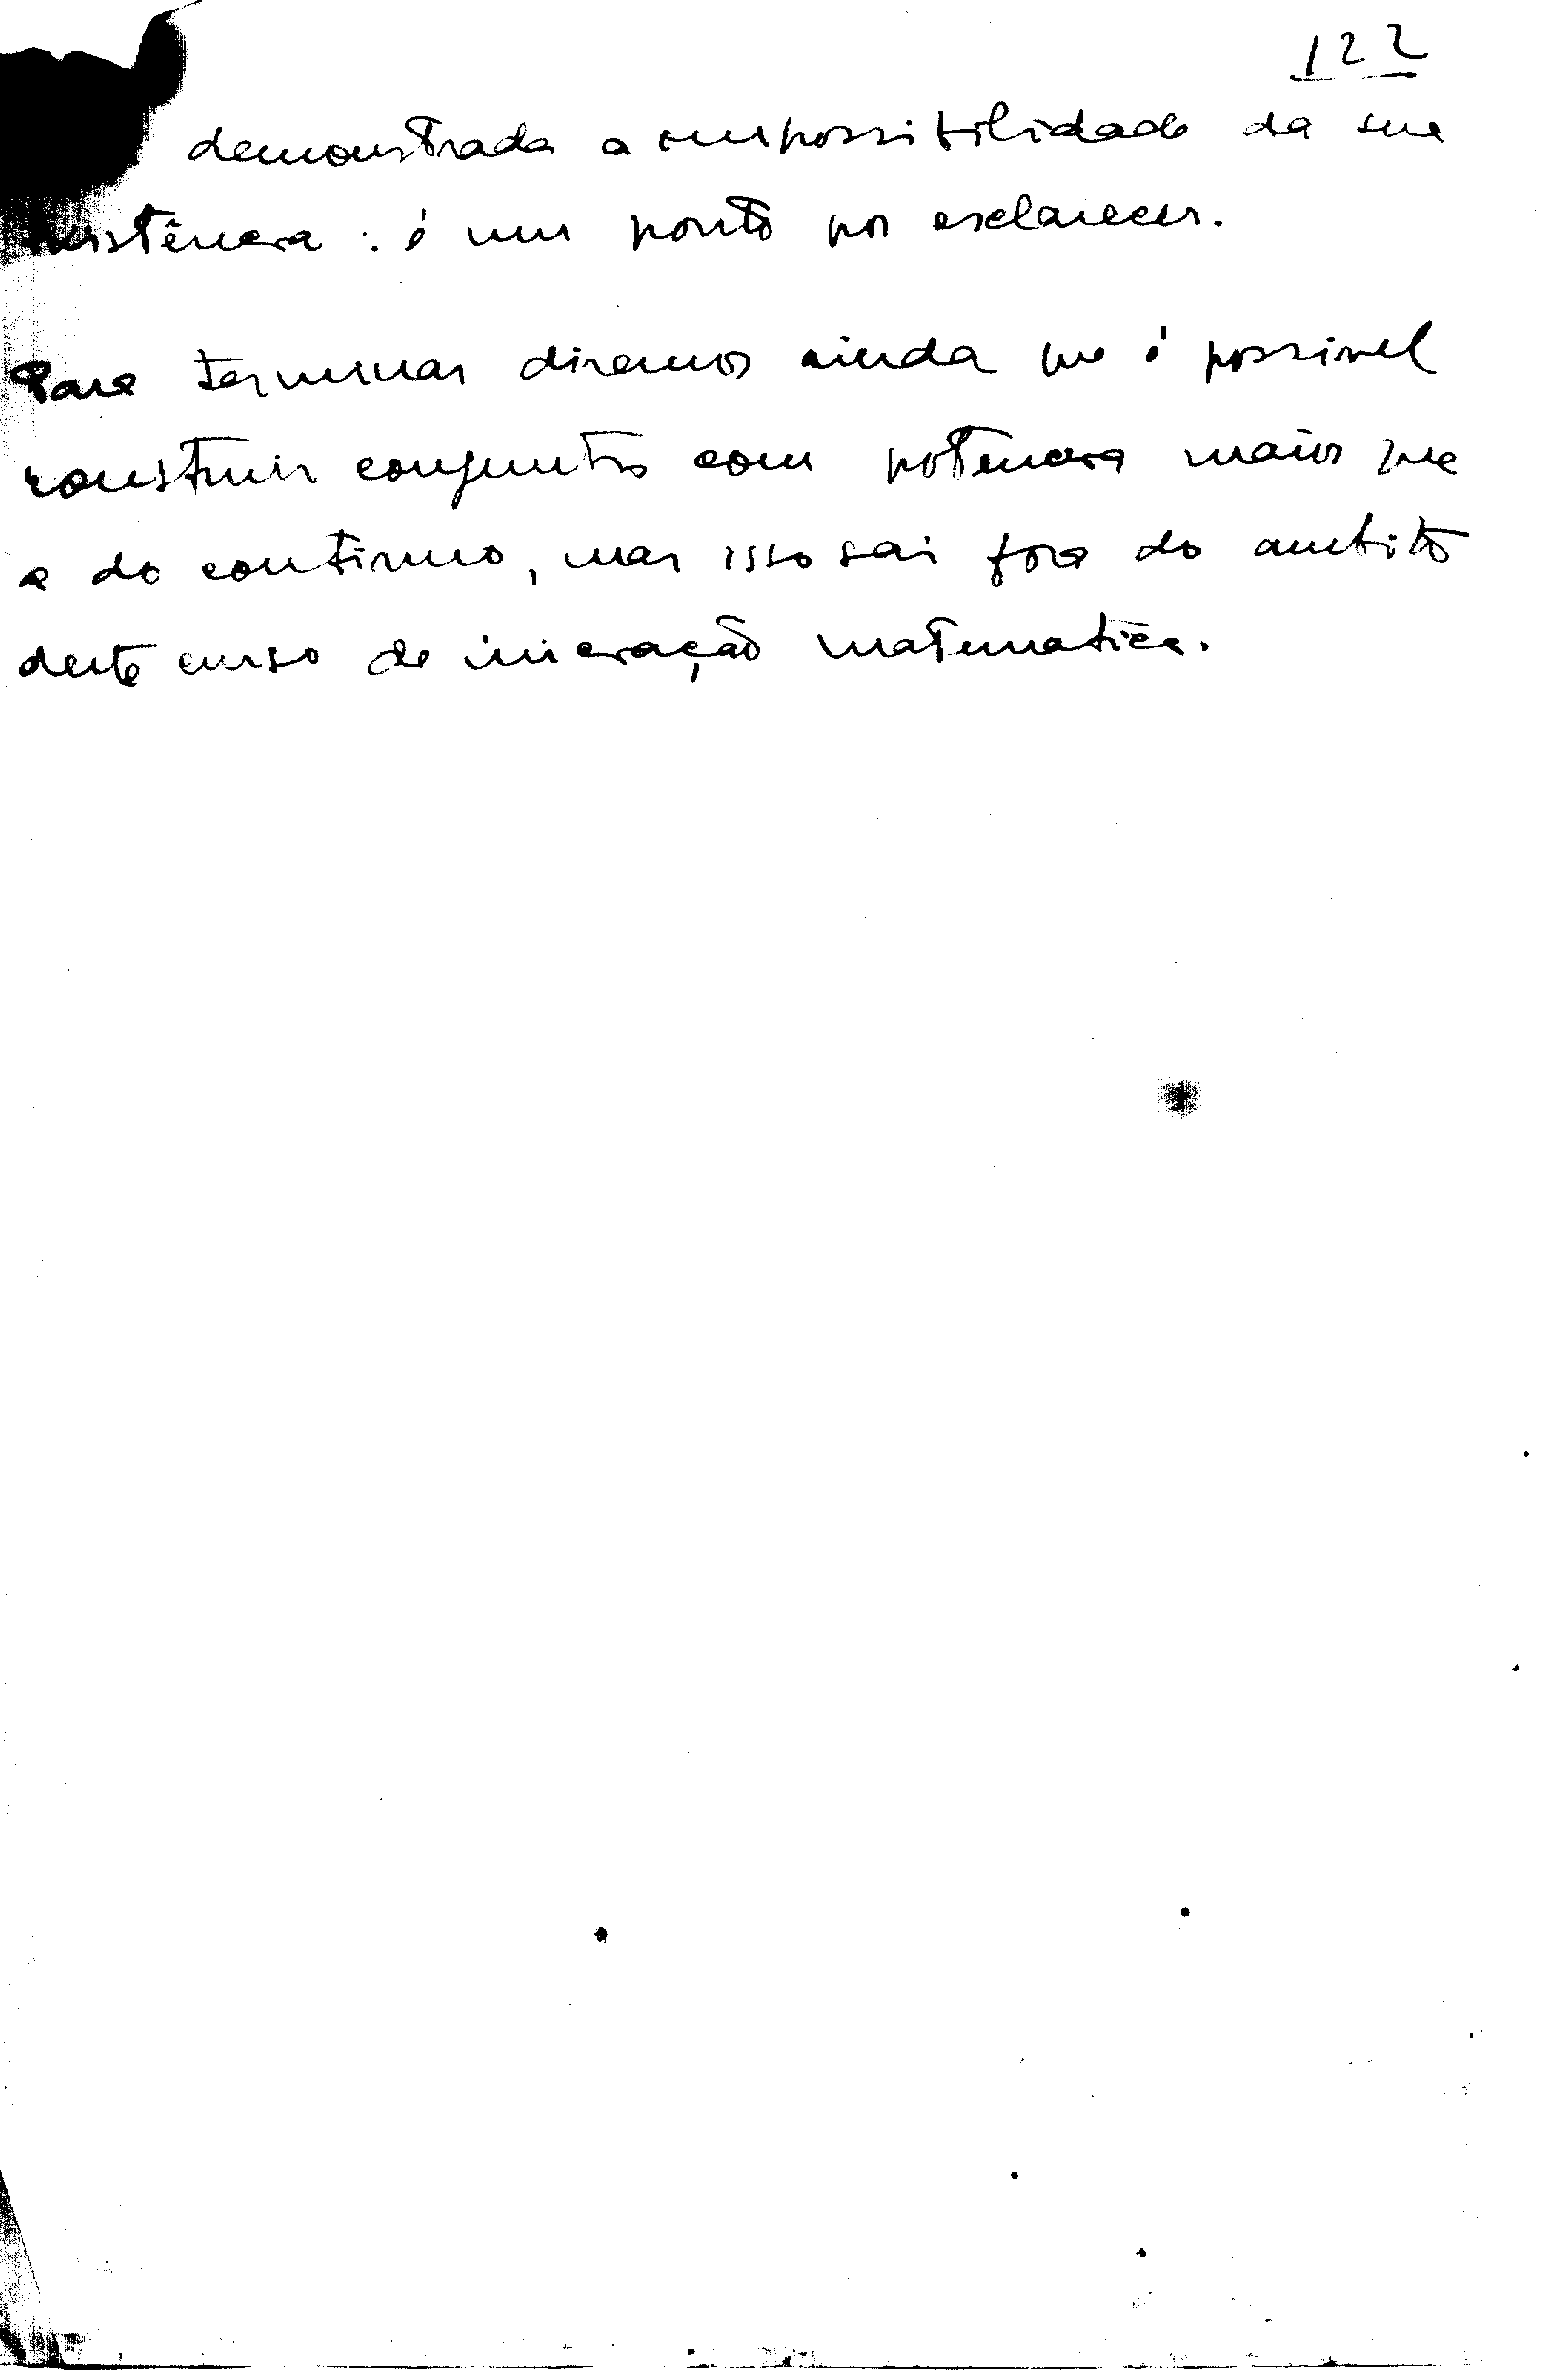 122
demonstrada a impossibilidade da sua
existência : é um ponto por esclarecer.
Para terminar diremos ainda que é possivel
construir conjuntos com potencia maior que
a do continuo, mas isso sai fora do ambito
deste curso de iniciação matematica.